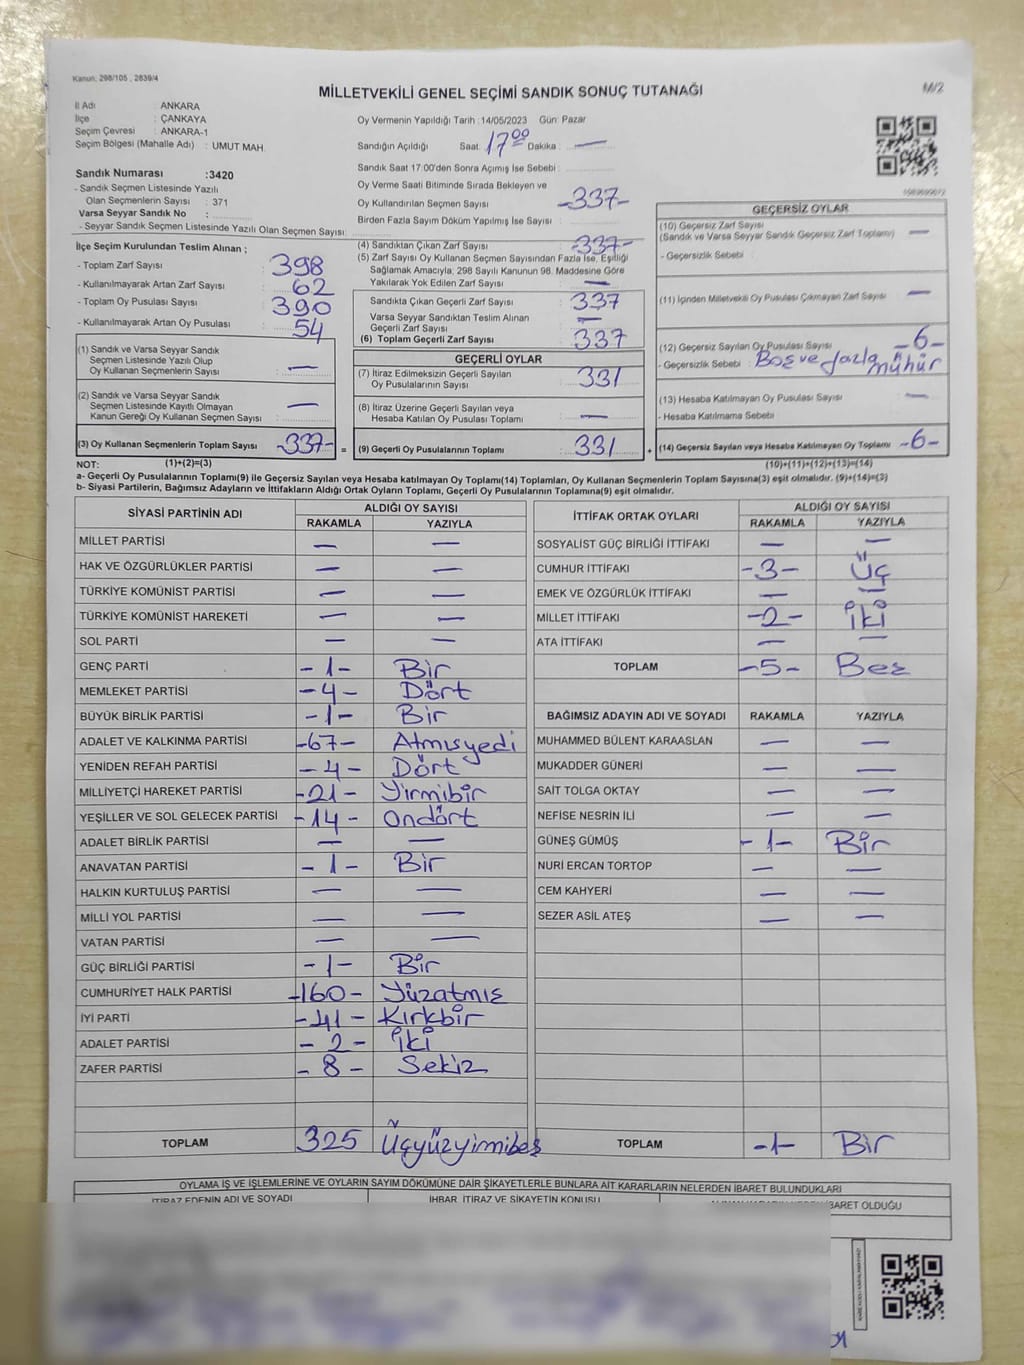 Kanun: 298/105 , 2839/4
MİLLETVEKİLİ GENEL SEÇİMİ SANDIK SONUÇ TUTANAĞI
M/2
İl Adı : ANKARA
İlçe : ÇANKAYA
Seçim Çevresi : ANKARA-1
Seçim Bölgesi (Mahalle Adı) : UMUT MAH.
Oy Vermenin Yapıldığı Tarih :14/05/2023 Gün: Pazar
Sandığın Açıldığı Saat: 17 00 Dakika : —
Sandık Saat 17:00'den Sonra Açımış İse Sebebi :
Sandık Numarası :3420
- Sandık Seçmen Listesinde Yazılı
Olan Seçmenlerin Sayısı : 371
Varsa Seyyar Sandık No :
- Seyyar Sandık Listesinde Yazılı Olan Seçmen Sayısı:
Oy Verme Saati Bitiminde Sırada Bekleyen ve
Oy Kullandırılan Seçmen Sayısı -337-
Birden Fazla Sayım Döküm Yapılmış İse Sayısı :
İlçe Seçim Kurulundan Teslim Alınan ;
- Toplam Zarf Sayısı : 398
- Kullanılmayarak Artan Zarf Sayısı : 62
- Toplam Oy Pusulası Sayısı : 390
- Kullanılmayarak Artan Oy Pusulası : 54
(1) Sandık ve Varsa Seyyar Sandık
Seçmen Listesinde Yazılı Olup
Oy Kullanan Seçmenlerin Sayısı : —
(2) Sandık ve Varsa Seyyar Sandık
Seçmen Listesinde Kayıtlı Olmayan
Kanun Gereği Oy Kullanan Seçmen Sayısı : —
(3) Oy Kullanan Seçmenlerin Toplam Sayısı -337- =
(4) Sandıktan Çıkan Zarf Sayısı : -337-
(5) Zarf Sayısı Oy Kullanan Seçmen Sayısından Fazla İse, Eşitliği
Sağlamak Amacıyla; 298 Sayılı Kanunun 98. Maddesine Göre
Yakılarak Yok Edilen Zarf Sayısı : —
Sandıkta Çıkan Geçerli Zarf Sayısı : 337
Varsa Seyyar Sandıktan Teslim Alınan
Geçerli Zarf Sayısı : —
(6) Toplam Geçerli Zarf Sayısı : 337
GEÇERLİ OYLAR
(7) İtiraz Edilmeksizin Geçerli Sayılan
Oy Pusulalarının Sayısı : 331
(8) İtiraz Üzerine Geçerli Sayılan veya
Hesaba Katılan Oy Pusulası Toplamı : —
(9) Geçerli Oy Pusulalarının Toplamı : 331 +
GEÇERSİZ OYLAR
(10) Geçersiz Zarf Sayısı
(Sandık ve Varsa Seyyar Sandık Geçersiz Zarf Toplamı) —
- Geçersizlik Sebebi :
(11) İçinden Milletvekili Oy Pusulası Çıkmayan Zarf Sayısı —
(12) Geçersiz Sayılan Oy Pusulası Sayısı -6-
- Geçersizlik Sebebi : Boş ve fazla mühür
(13) Hesaba Katılmayan Oy Pusulası Sayısı : —
- Hesaba Katılmama Sebebi :
(14) Geçersiz Sayılan veya Hesaba Katılmayan Oy Toplamı -6-
NOT: (1)+(2)=(3)
(10)+(11)+(12)+(13)=(14)
a- Geçerli Oy Pusulalarının Toplamı(9) ile Geçersiz Sayılan veya Hesaba katılmayan Oy Toplamı(14) Toplamları, Oy Kullanan Seçmenlerin Toplam Sayısına(3) eşit olmalıdır. (9)+(14)=(3)
b- Siyasi Partilerin, Bağımsız Adayların ve İttifakların Aldığı Ortak Oyların Toplamı, Geçerli Oy Pusulalarının Toplamına(9) eşit olmalıdır.
SİYASİ PARTİNİN ADI ALDIĞI OY SAYISI
RAKAMLA YAZIYLA
MİLLET PARTİSİ — —
HAK VE ÖZGÜRLÜKLER PARTİSİ — —
TÜRKİYE KOMÜNİST PARTİSİ — —
TÜRKİYE KOMÜNİST HAREKETİ — —
SOL PARTİ — —
GENÇ PARTİ -1- Bir
MEMLEKET PARTİSİ -4- Dört
BÜYÜK BİRLİK PARTİSİ -1- Bir
ADALET VE KALKINMA PARTİSİ -67- Atmışyedi
YENİDEN REFAH PARTİSİ -4- Dört
MİLLİYETÇİ HAREKET PARTİSİ -21- Yirmibir
YEŞİLLER VE SOL GELECEK PARTİSİ -14- Ondört
ADALET BİRLİK PARTİSİ — —
ANAVATAN PARTİSİ -1- Bir
HALKIN KURTULUŞ PARTİSİ — —
MİLLİ YOL PARTİSİ — —
VATAN PARTİSİ — —
GÜÇ BİRLİĞİ PARTİSİ -1- Bir
CUMHURİYET HALK PARTİSİ -160- Yüzatmış
İYİ PARTİ -41- Kırkbir
ADALET PARTİSİ -2- İki
ZAFER PARTİSİ -8- Sekiz
TOPLAM 325 Üçyüzyirmibeş
İTTİFAK ORTAK OYLARI ALDIĞI OY SAYISI
RAKAMLA YAZIYLA
SOSYALİST GÜÇ BİRLİĞİ İTTİFAKI — —
CUMHUR İTTİFAKI -3- Üç
EMEK VE ÖZGÜRLÜK İTTİFAKI — —
MİLLET İTTİFAKI -2- İki
ATA İTTİFAKI — —
TOPLAM -5- Beş
BAĞIMSIZ ADAYIN ADI VE SOYADI RAKAMLA YAZIYLA
MUHAMMED BÜLENT KARAASLAN — —
MUKADDER GÜNERİ — —
SAİT TOLGA OKTAY — —
NEFİSE NESRİN İLİ — —
GÜNEŞ GÜMÜŞ -1- Bir
NURİ ERCAN TORTOP — —
CEM KAHYERİ — —
SEZER ASİL ATEŞ — —
TOPLAM -1- Bir
OYLAMA İŞ VE İŞLEMLERİNE VE OYLARIN SAYIM DÖKÜMÜNE DAİR ŞİKAYETLERLE BUNLARA AİT KARARLARIN NELERDEN İBARET BULUNDUKLARI
İTİRAZ EDENİN ADI VE SOYADI İHBAR, İTİRAZ VE ŞİKAYETİN KONUSU İBARET OLDUĞU